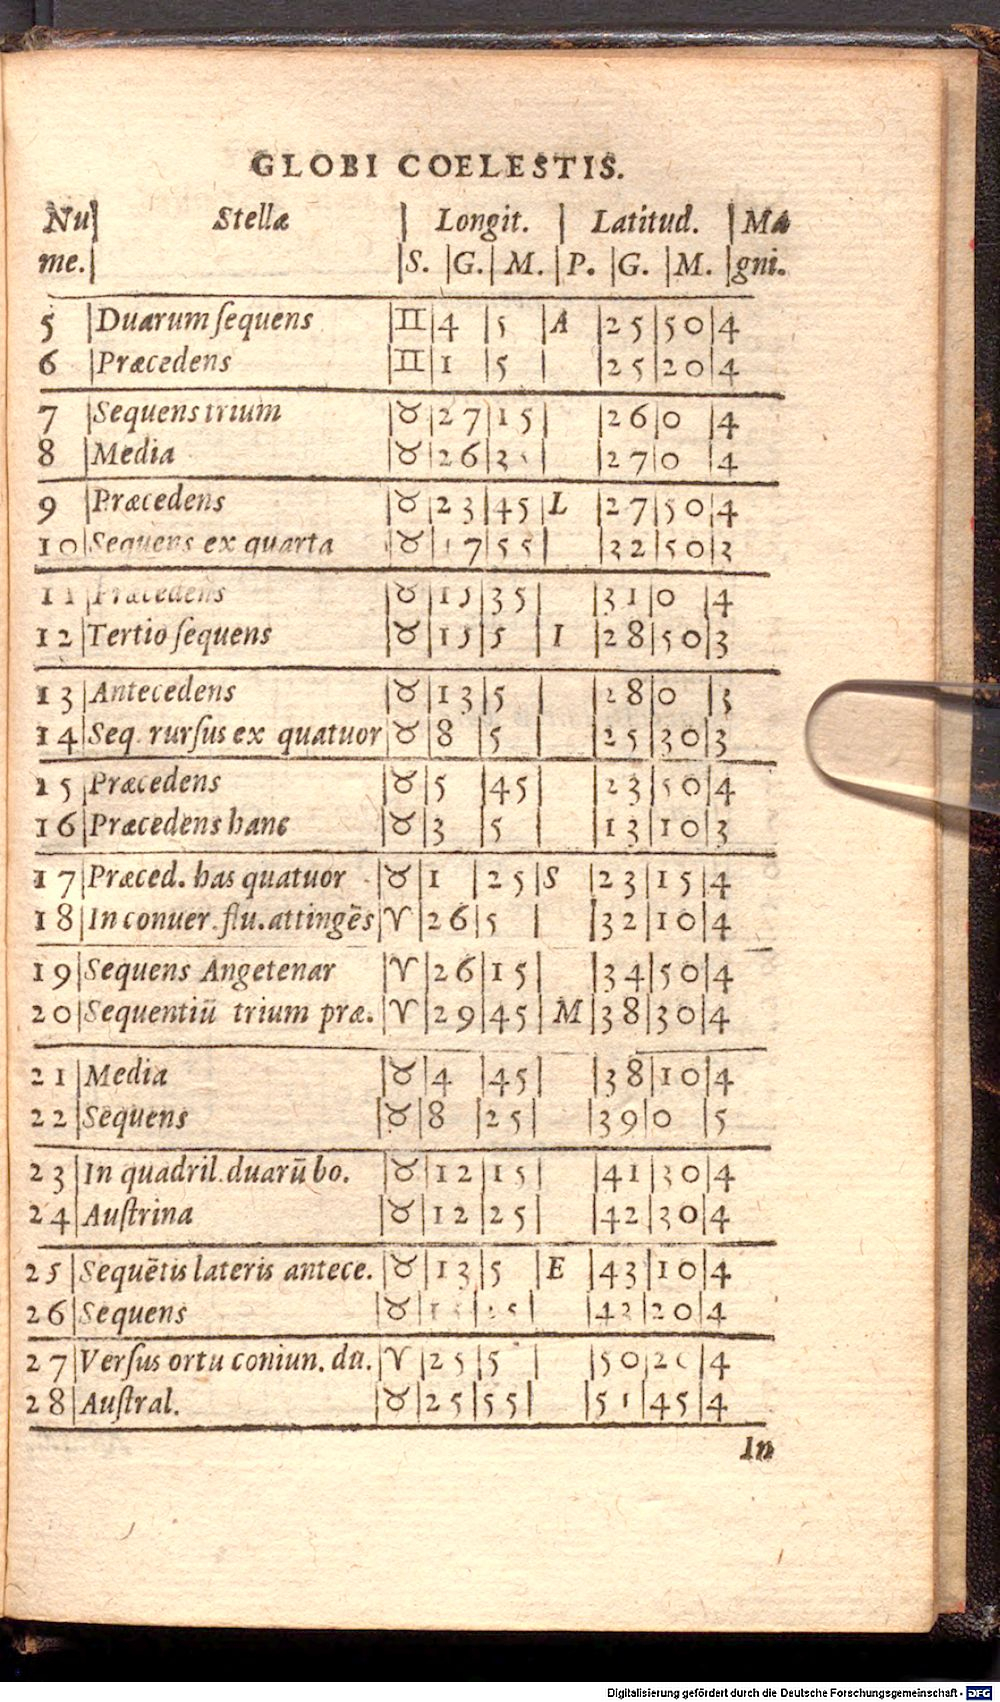 GLOBI COELESTIS.
Nu| Stellæ | Longit. | Latitud. | Ma
me.| |S. |G.| M. |P. |G. |M. |gni.
5 |Duarum ſequens |♊|4 |5 |A |25|50|4
6 |Præcedens |♊|1 |5 | |25|20|4
7 |Sequens trium |♉|27|15| |26|0 |4
8 |Media |♉|26| | |27|0 |4
9 |Præcedens |♉|23|45|L |27|50|4
10|Sequens ex quarta |♉|17|55| |32|50|3
11|Præcedens |♉|15|35| |31|0 |4
12|Tertio ſequens |♉|15|5 |I |28|50|3
13|Antecedens |♉|13|5 | |28|0 |3
14|Seq. rurſus ex quatuor|♉|8 |5 | |25|30|3
15|Præcedens |♉|5 |45| |23|50|4
16|Præcedens hanc |♉|3 |5 | |13|10|3
17|Præced. has quatuor |♉|1 |25|S |23|15|4
18|In conuer. flu. attingẽs|♈|26|5 | |32|10|4
19|Sequens Angetenar |♈|26|15| |34|50|4
20|Sequentiũ trium præ.|♈|29|45|M|38|30|4
21|Media |♉|4 |45| |38|10|4
22|Sequens |♉|8 |25| |39|0 |5
23|In quadril. duarũ bo. |♉|12|15| |41|30|4
24|Auſtrina |♉|12|25| |42|30|4
25|Sequẽtis lateris antece.|♉|13|5 |E |43|10|4
26|Sequens |♉| | | |43|20|4
27|Verſus ortũ coniun. du.|♈|25|5 | |50|20|4
28|Auſtral. |♉|25|55| |51|45|4
In
Digitalisierung gefördert durch die Deutsche Forschungsgemeinschaft - DFG